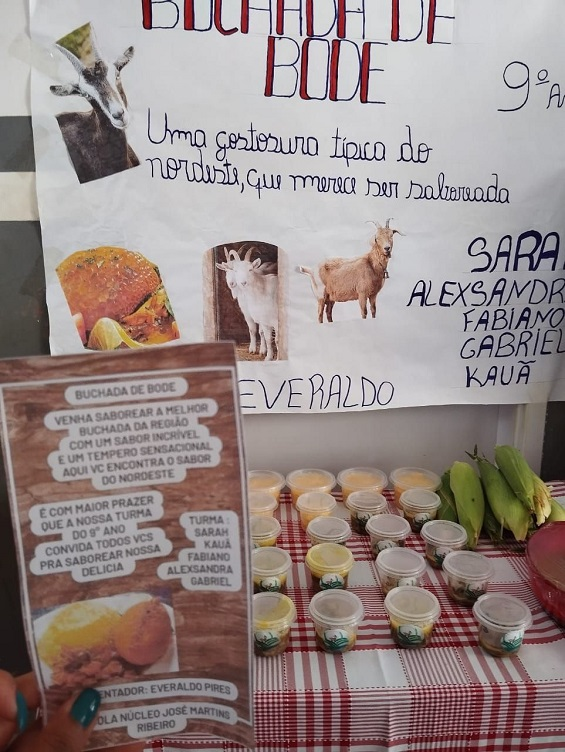 BUCHADA DE
BODE
9º A
Uma gostosura típica do
nordeste, que merece ser saboreada
SARA
ALEXSANDR
FABIANO
GABRIEL
KAUÃ
EVERALDO
BUCHADA DE BODE
VENHA SABOREAR A MELHOR
BUCHADA DA REGIÃO
COM UM SABOR INCRÍVEL
E UM TEMPERO SENSACIONAL
AQUI VC ENCONTRA O SABOR
DO NORDESTE
É COM MAIOR PRAZER
QUE A NOSSA TURMA
DO 9° ANO
CONVIDA TODOS VCS
PRA SABOREAR NOSSA
DELICIA
TURMA :
SARAH
KAUÃ
FABIANO
ALEXSANDRA
GABRIEL
ENTADOR: EVERALDO PIRES
OLA NÚCLEO JOSÉ MARTINS
RIBEIRO